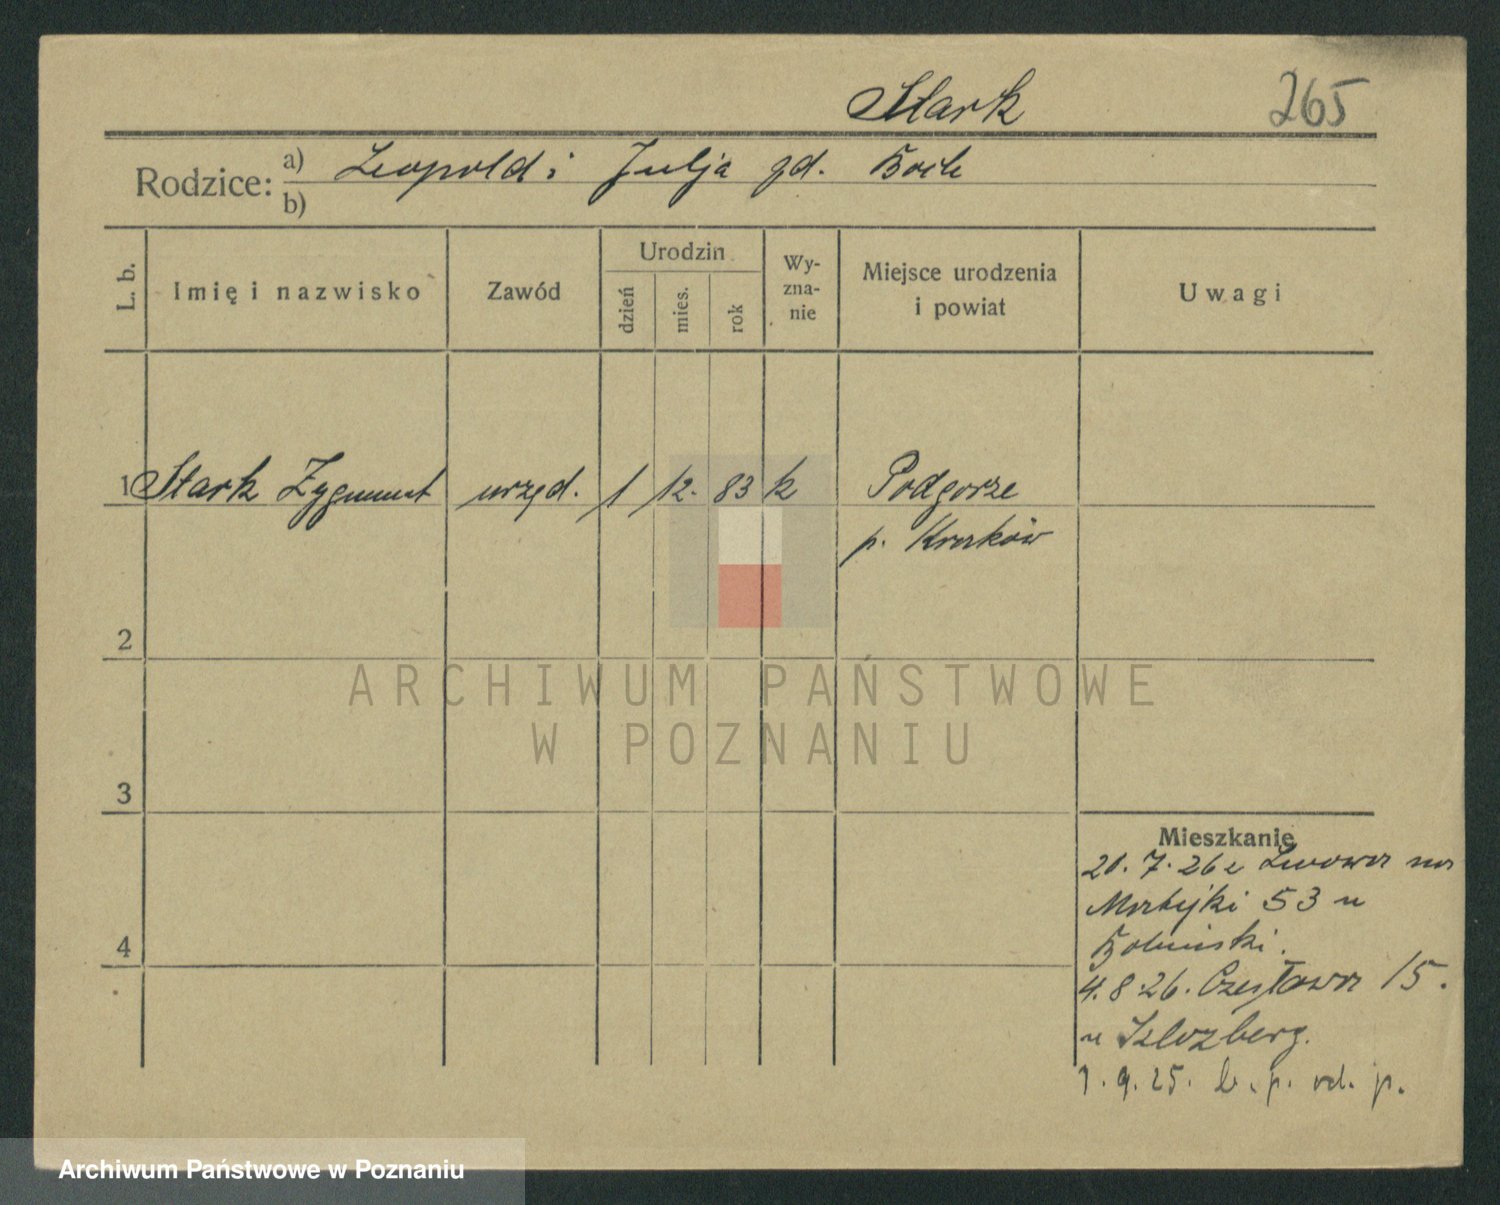 Stark 265
Rodzice: a) Leopold i Julja gd.
b)
L. b. Imię i nazwisko Zawód Urodzin dzień mies. rok Wy-zna-nie Miejsce urodzenia i powiat Uwagi
1 Stark Zygmunt urzęd. 1 12. 83 k Podgorze
p. Kraków
2
ARCHIWUM PAŃSTWOWE
W POZNANIU
3
Mieszkanie
20. 7. 26 z Lwowa na
Matejki 53 u
4
4. 8. 26. Czesława 15.
u
1. 9. 25. p. p.
Archiwum Państwowe w Poznaniu